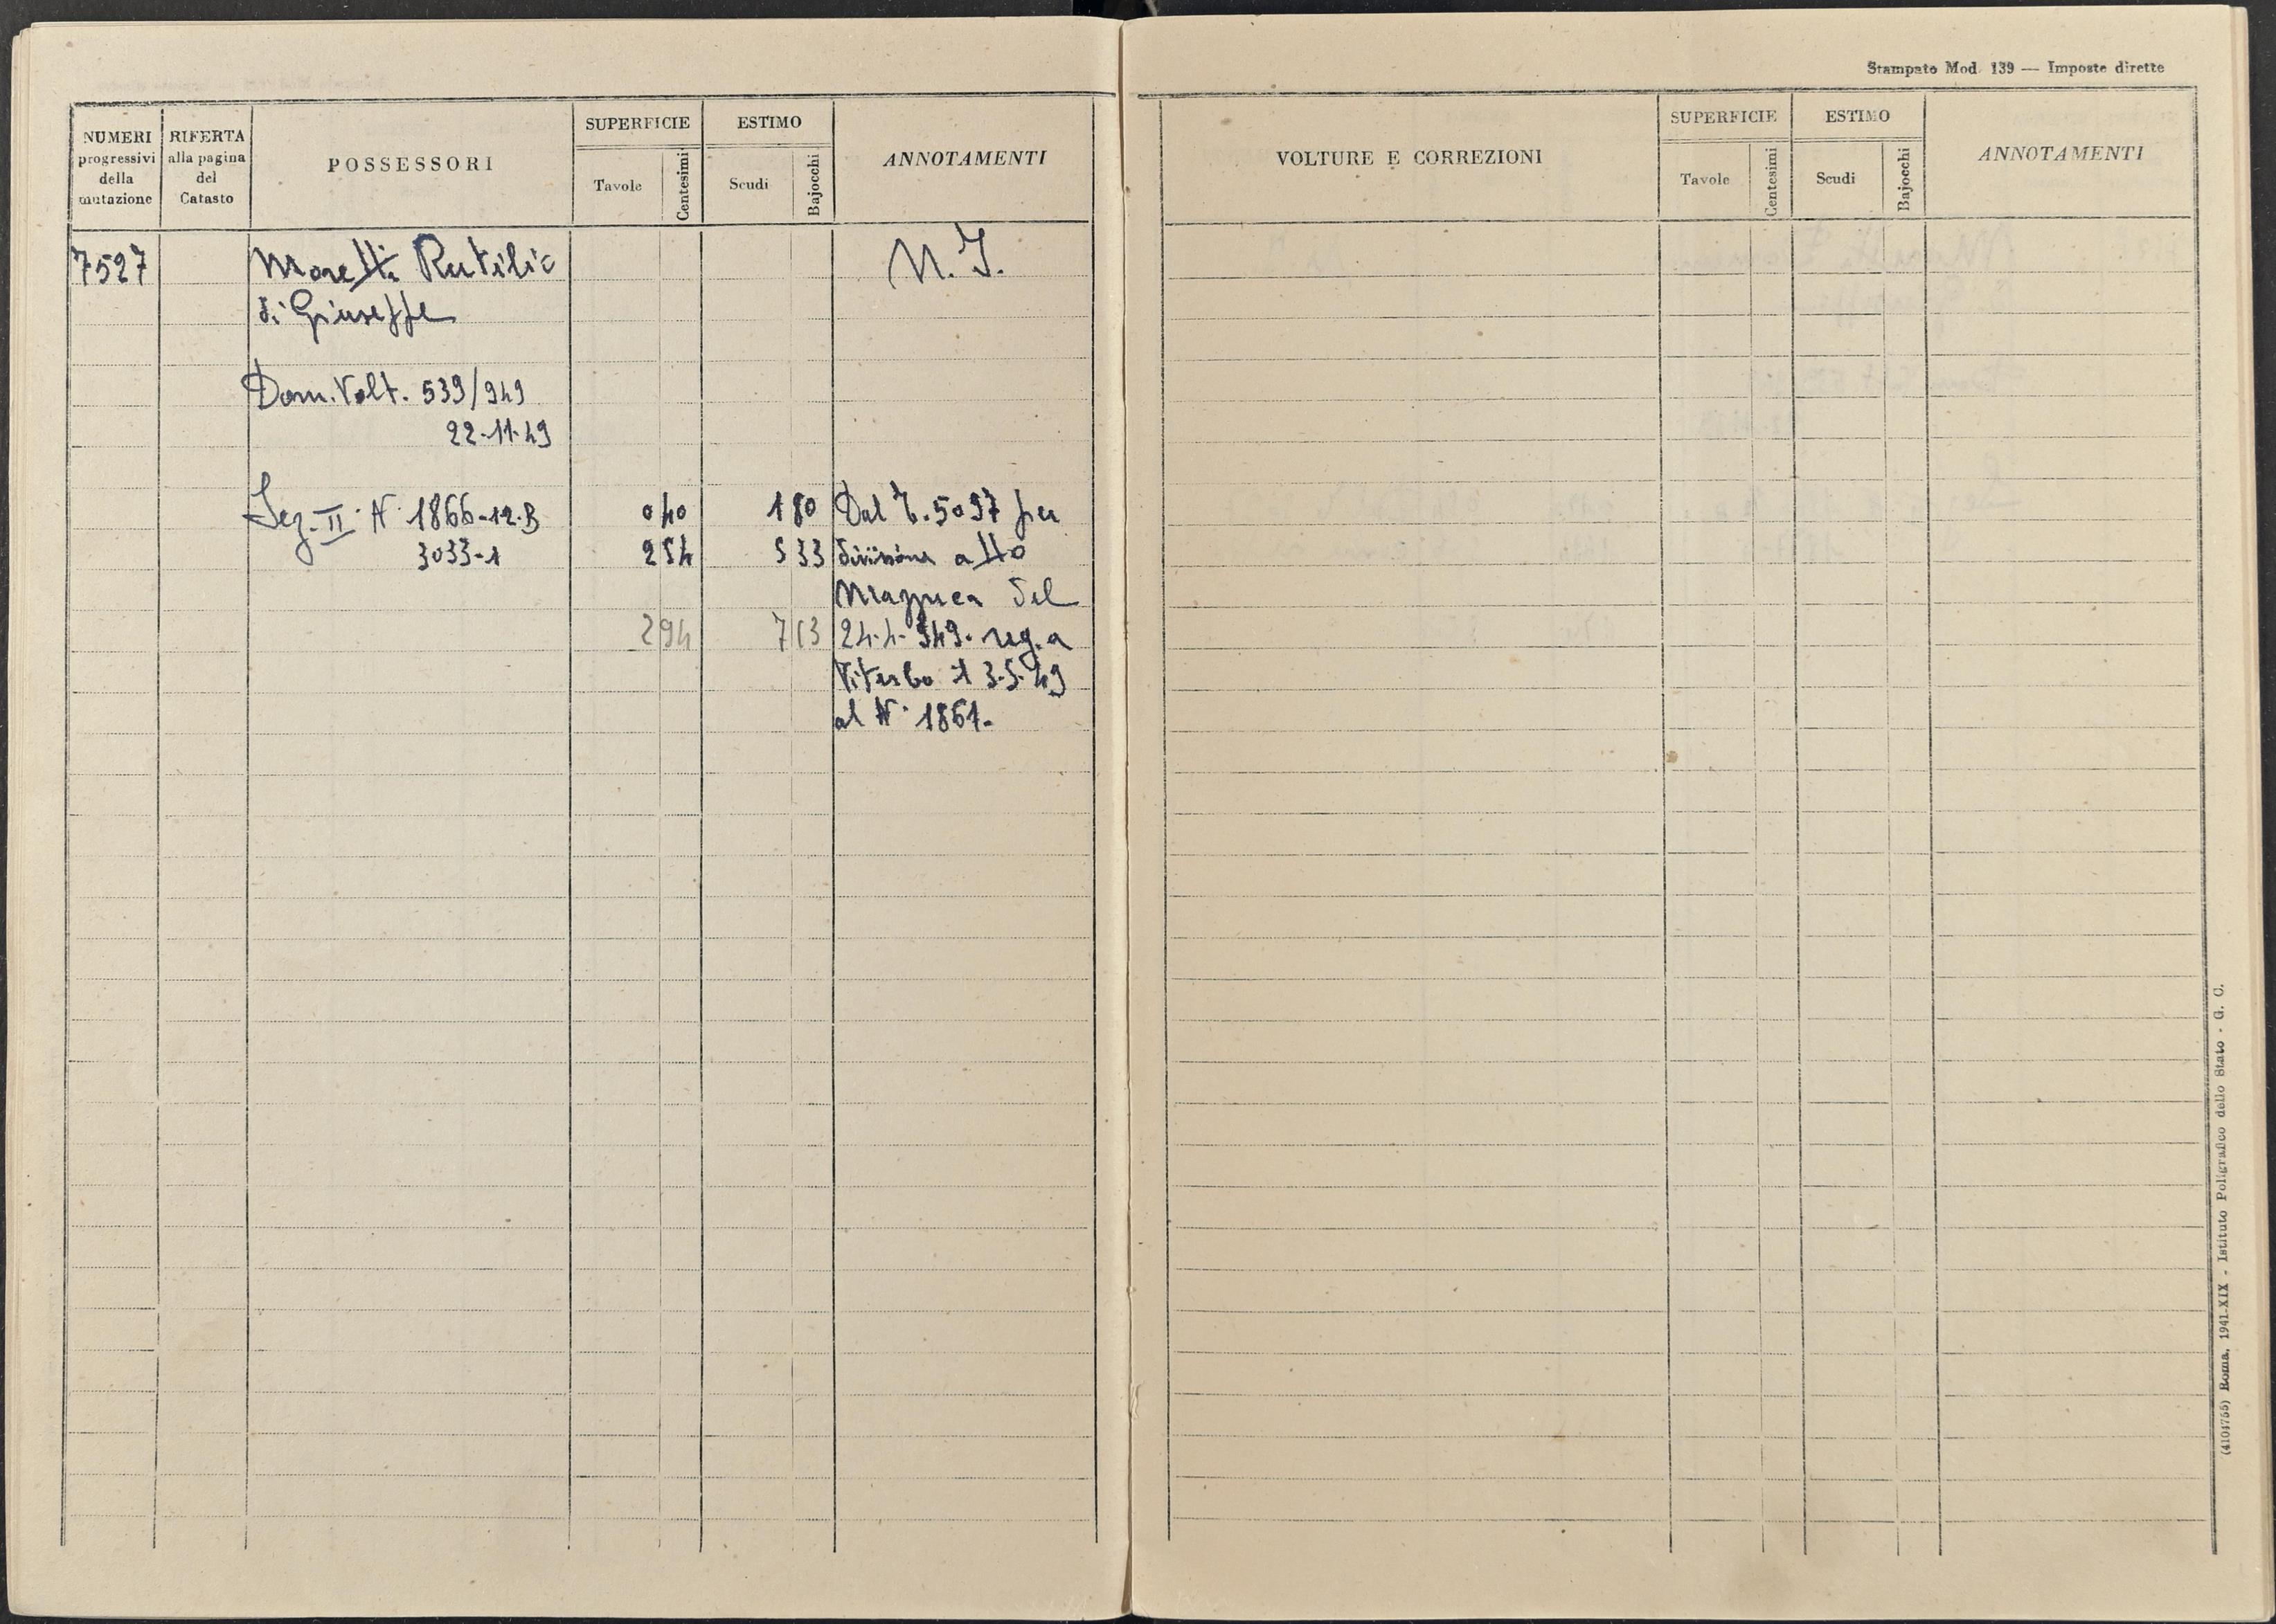 Stampato Mod. 139 — Imposte dirette
NUMERI progressivi della mutazione
RIFERTA alla pagina del Catasto
POSSESSORI
SUPERFICIE
Tavole
Centesimi
ESTIMO
Scudi
Bajocchi
ANNOTAMENTI
7527 Moretti Rutilio N. I.
di Giuseppe
Dom. Volt. 539/949
22-11-49
Sez. II N. 1866-12.B 0 40 1 80 Dal T. 5097 per
3033-1 2 54 5 33 divisione atto
Mazzuca del
2 94 7 13 24-4-949. reg. a
Viterbo il 3-5-49
al N. 1861.
VOLTURE E CORREZIONI
SUPERFICIE
Tavole
Centesimi
ESTIMO
Scudi
Bajocchi
ANNOTAMENTI
(4104755) Roma, 1941-XIX - Istituto Poligrafico dello Stato - G. C.